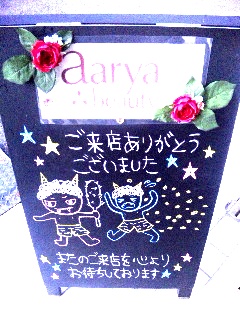 aarva
beauty
ご来店ありがとう
ございました
またのご来店を心より
お待ちしております